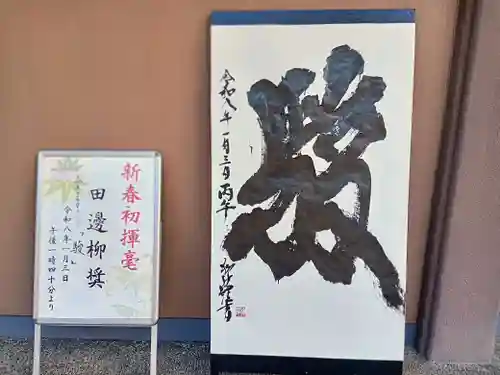 令和八年一月三日丙午
駿
新春初揮毫
田邊柳奨
「駿」
令和八年一月三日
午後一時四十分より